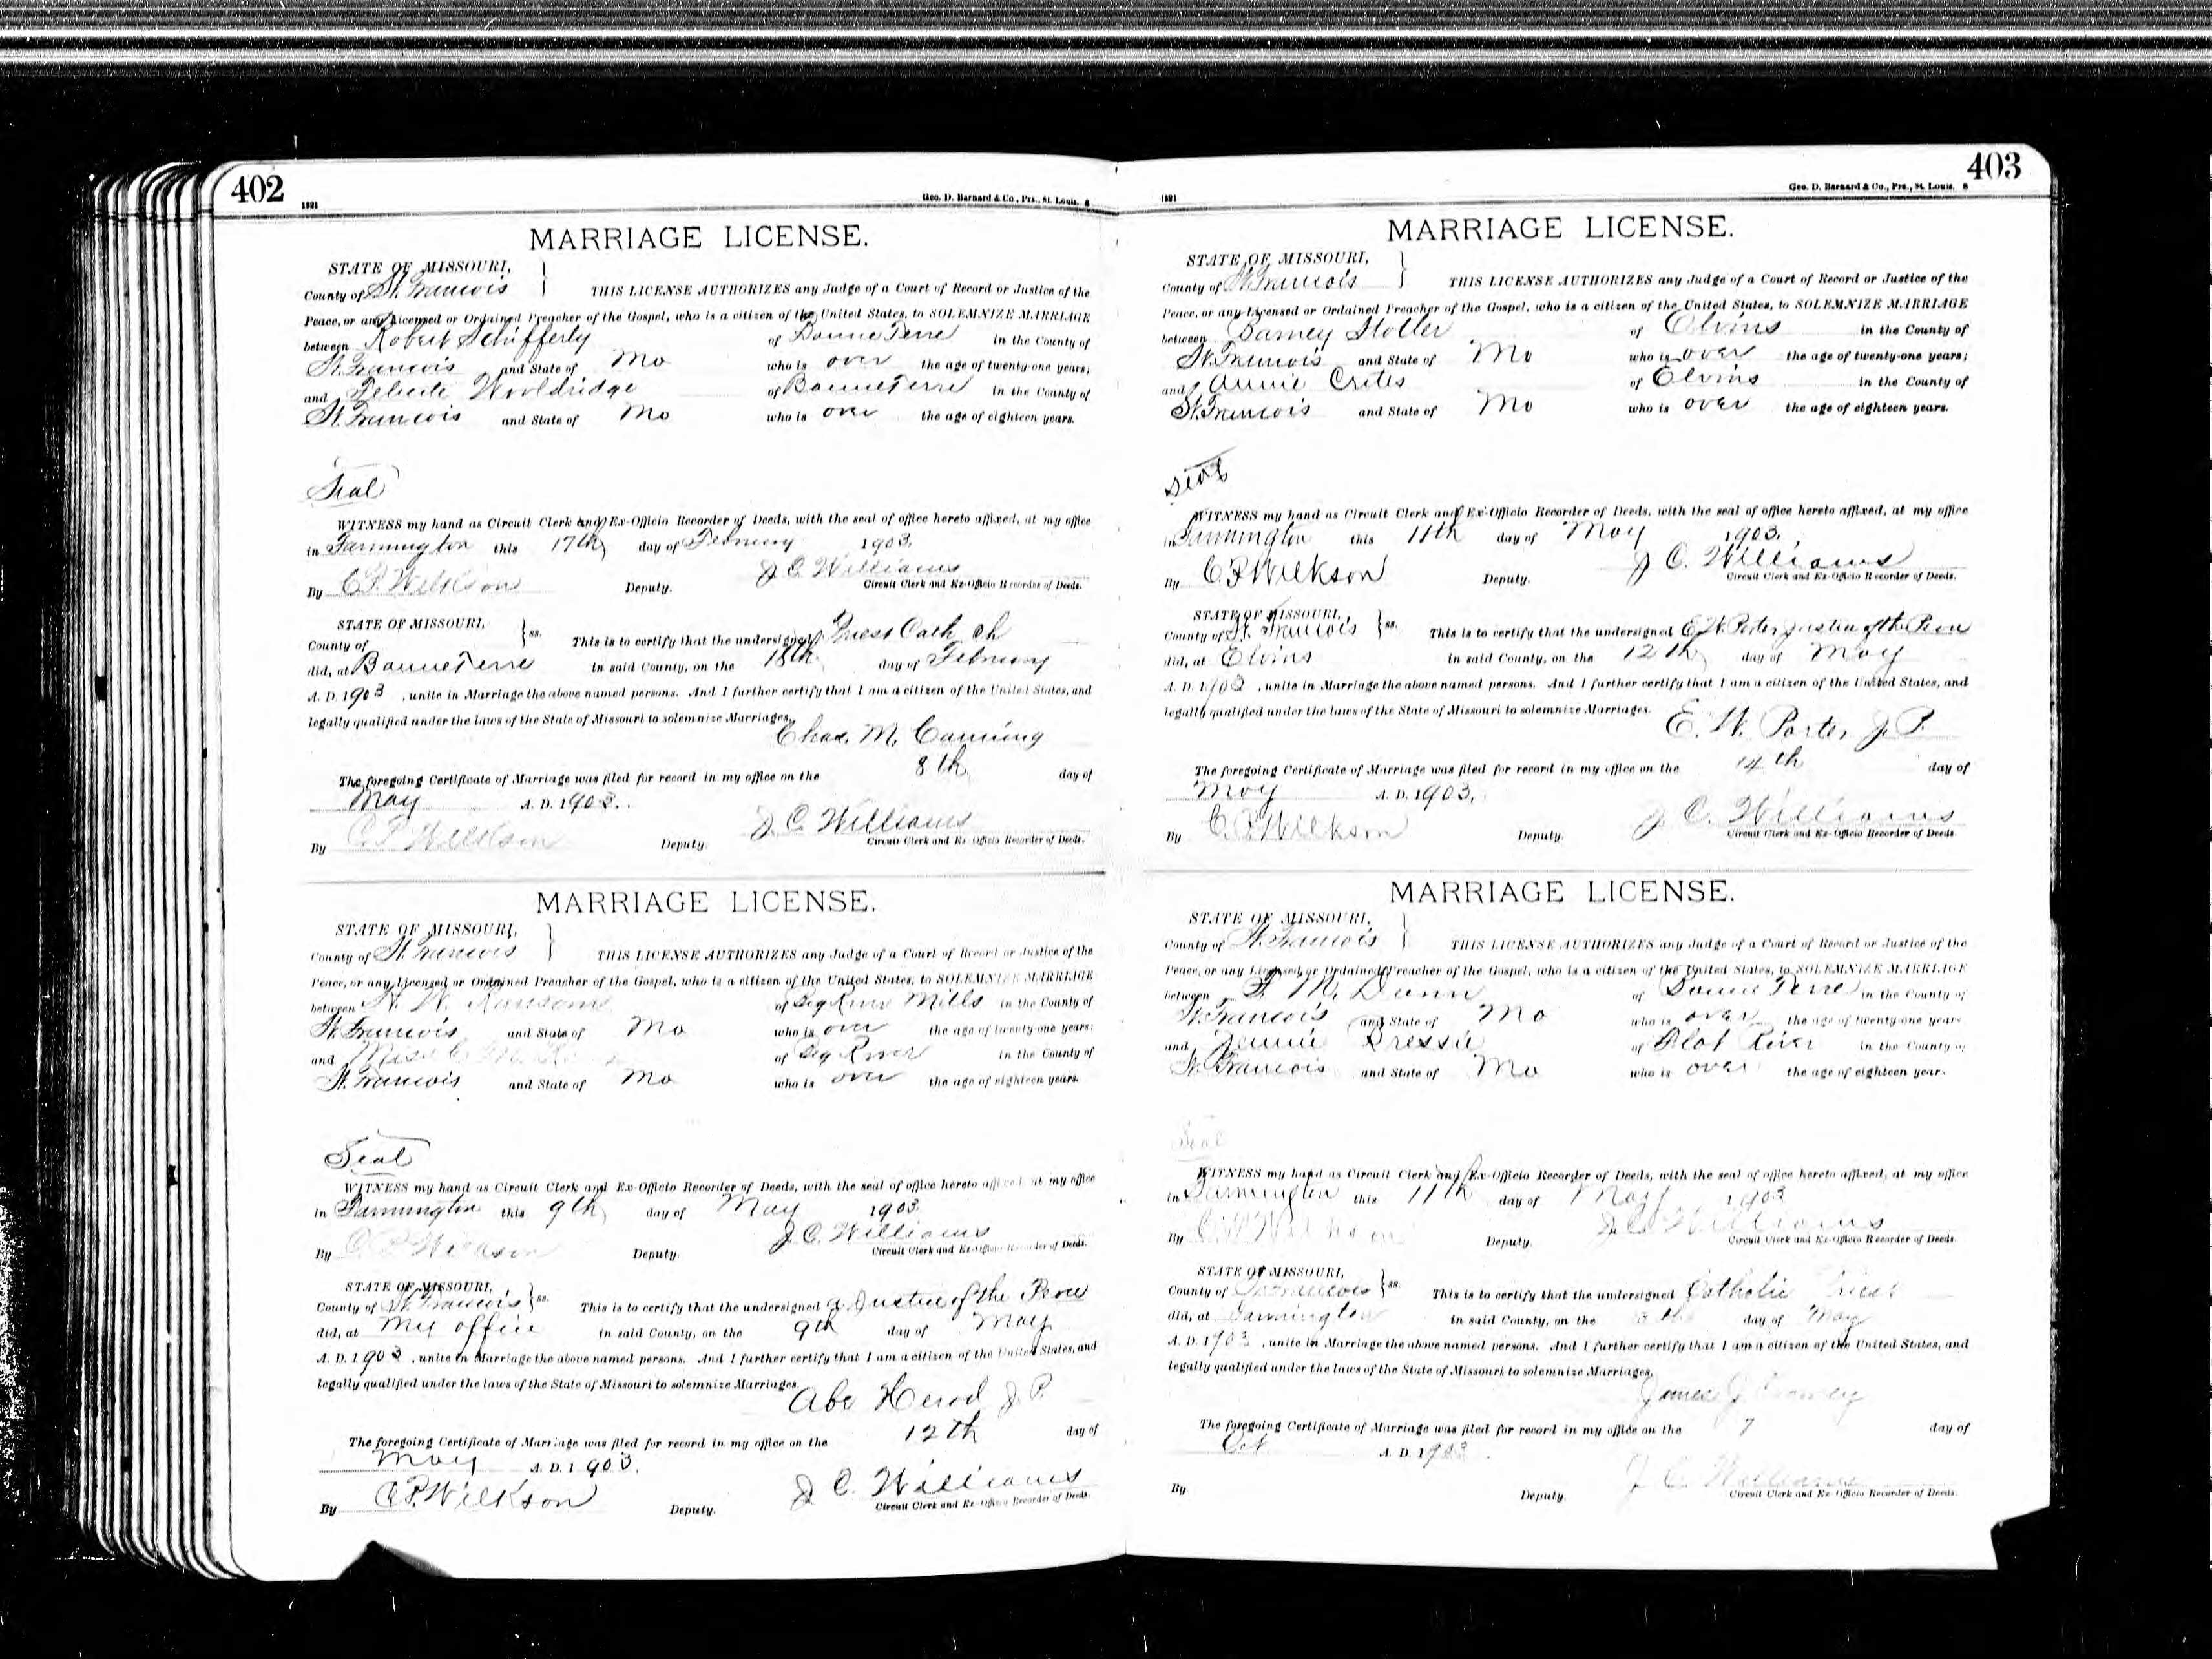 402
1891
Geo. D. Barnard & Co., Prs., St. Louis. 8
MARRIAGE LICENSE.
STATE OF MISSOURI,
County of St. Francois THIS LICENSE AUTHORIZES any Judge of a Court of Record or Justice of the
Peace, or any Licensed or Ordained Preacher of the Gospel, who is a citizen of the United States, to SOLEMNIZE MARRIAGE
between Robert Schifferly of Bonne Terre in the County of
St. Francois and State of Mo who is over the age of twenty-one years;
and Felicite Wooldridge of Bonne Terre in the County of
St. Francois and State of Mo who is over the age of eighteen years.
Seal
WITNESS my hand as Circuit Clerk and Ex-Officio Recorder of Deeds, with the seal of office hereto affixed, at my office
in Farmington this 17th day of February 1903.
By C. P. Wilkson Deputy. J. C. Williams
Circuit Clerk and Ex-Officio Recorder of Deeds.
STATE OF MISSOURI,
County of ss. This is to certify that the undersigned Priest Cath ch
did, at Bonne Terre in said County, on the 18th day of February
A. D. 1903, unite in Marriage the above named persons. And I further certify that I am a citizen of the United States, and
legally qualified under the laws of the State of Missouri to solemnize Marriages.
Chas. M. Canning
The foregoing Certificate of Marriage was filed for record in my office on the 8th day of
May A. D. 1903.
By C. P. Wilkson Deputy. J. C. Williams
Circuit Clerk and Ex-Officio Recorder of Deeds.
MARRIAGE LICENSE.
STATE OF MISSOURI,
County of St. Francois THIS LICENSE AUTHORIZES any Judge of a Court of Record or Justice of the
Peace, or any Licensed or Ordained Preacher of the Gospel, who is a citizen of the United States, to SOLEMNIZE MARRIAGE
between W. Ransom of Big River Mills in the County of
St. Francois and State of Mo who is over the age of twenty-one years;
and Miss of Big River in the County of
St. Francois and State of Mo who is over the age of eighteen years.
Seal
WITNESS my hand as Circuit Clerk and Ex-Officio Recorder of Deeds, with the seal of office hereto affixed, at my office
in Farmington this 9th day of May 1903.
By C. P. Wilkson Deputy. J. C. Williams
Circuit Clerk and Ex-Officio Recorder of Deeds.
STATE OF MISSOURI,
County of St. Francois ss. This is to certify that the undersigned a Justice of the Peace
did, at My office in said County, on the 9th day of May
A. D. 1903, unite in Marriage the above named persons. And I further certify that I am a citizen of the United States, and
legally qualified under the laws of the State of Missouri to solemnize Marriages.
Abe Herod J. P.
The foregoing Certificate of Marriage was filed for record in my office on the 12th day of
May A. D. 1903.
By C. P. Wilkson Deputy. J. C. Williams
Circuit Clerk and Ex-Officio Recorder of Deeds.
403
1891
Geo. D. Barnard & Co., Prs., St. Louis. 8
MARRIAGE LICENSE.
STATE OF MISSOURI,
County of St. Francois THIS LICENSE AUTHORIZES any Judge of a Court of Record or Justice of the
Peace, or any Licensed or Ordained Preacher of the Gospel, who is a citizen of the United States, to SOLEMNIZE MARRIAGE
between Barney Stoller of Elvins in the County of
St. Francois and State of Mo who is over the age of twenty-one years;
and Annie Crites of Elvins in the County of
St. Francois and State of Mo who is over the age of eighteen years.
Seal
WITNESS my hand as Circuit Clerk and Ex-Officio Recorder of Deeds, with the seal of office hereto affixed, at my office
in Farmington this 11th day of May 1903.
By C. P. Wilkson Deputy. J. C. Williams
Circuit Clerk and Ex-Officio Recorder of Deeds.
STATE OF MISSOURI,
County of St. Francois ss. This is to certify that the undersigned E. W. Porter Justice of the Peace
did, at Elvins in said County, on the 12th day of May
A. D. 1903, unite in Marriage the above named persons. And I further certify that I am a citizen of the United States, and
legally qualified under the laws of the State of Missouri to solemnize Marriages.
E. W. Porter J. P.
The foregoing Certificate of Marriage was filed for record in my office on the 14th day of
May A. D. 1903.
By C. P. Wilkson Deputy. J. C. Williams
Circuit Clerk and Ex-Officio Recorder of Deeds.
MARRIAGE LICENSE.
STATE OF MISSOURI,
County of St. Francois THIS LICENSE AUTHORIZES any Judge of a Court of Record or Justice of the
Peace, or any Licensed or Ordained Preacher of the Gospel, who is a citizen of the United States, to SOLEMNIZE MARRIAGE
between M. Dunn of Bonne Terre in the County of
St. Francois and State of Mo who is over the age of twenty-one years
and Jennie Pressie of Flat River in the County of
St. Francois and State of Mo who is over the age of eighteen years
Seal
WITNESS my hand as Circuit Clerk and Ex-Officio Recorder of Deeds, with the seal of office hereto affixed, at my office
in Farmington this 11th day of May 1903
By C. P. Wilkson Deputy. J. C. Williams
Circuit Clerk and Ex-Officio Recorder of Deeds.
STATE OF MISSOURI,
County of St. Francois ss. This is to certify that the undersigned Catholic Priest
did, at Farmington in said County, on the day of May
A. D. 1903, unite in Marriage the above named persons. And I further certify that I am a citizen of the United States, and
legally qualified under the laws of the State of Missouri to solemnize Marriages.
James J.
The foregoing Certificate of Marriage was filed for record in my office on the 7 day of
Oct A. D. 1903.
By Deputy. J. C. Williams
Circuit Clerk and Ex-Officio Recorder of Deeds.